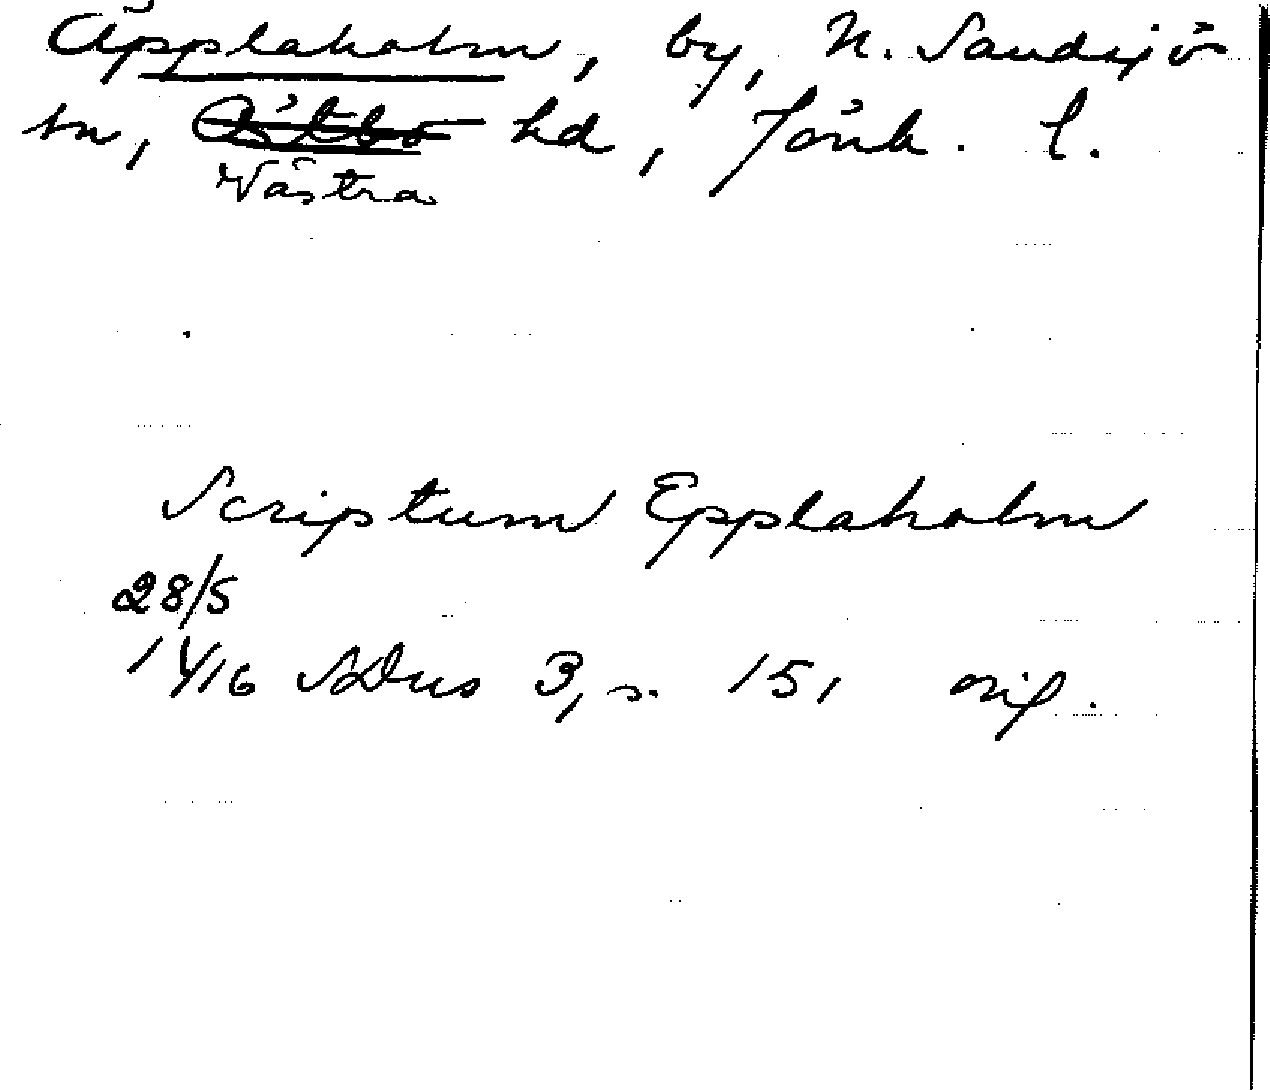 Äpplaholm, by, N. Sandsjö
sn, Östbo hd, Jönk. l.
Västra
Scriptum Epplaholm
28/5
1416 SDns 3, s. 151 orig.